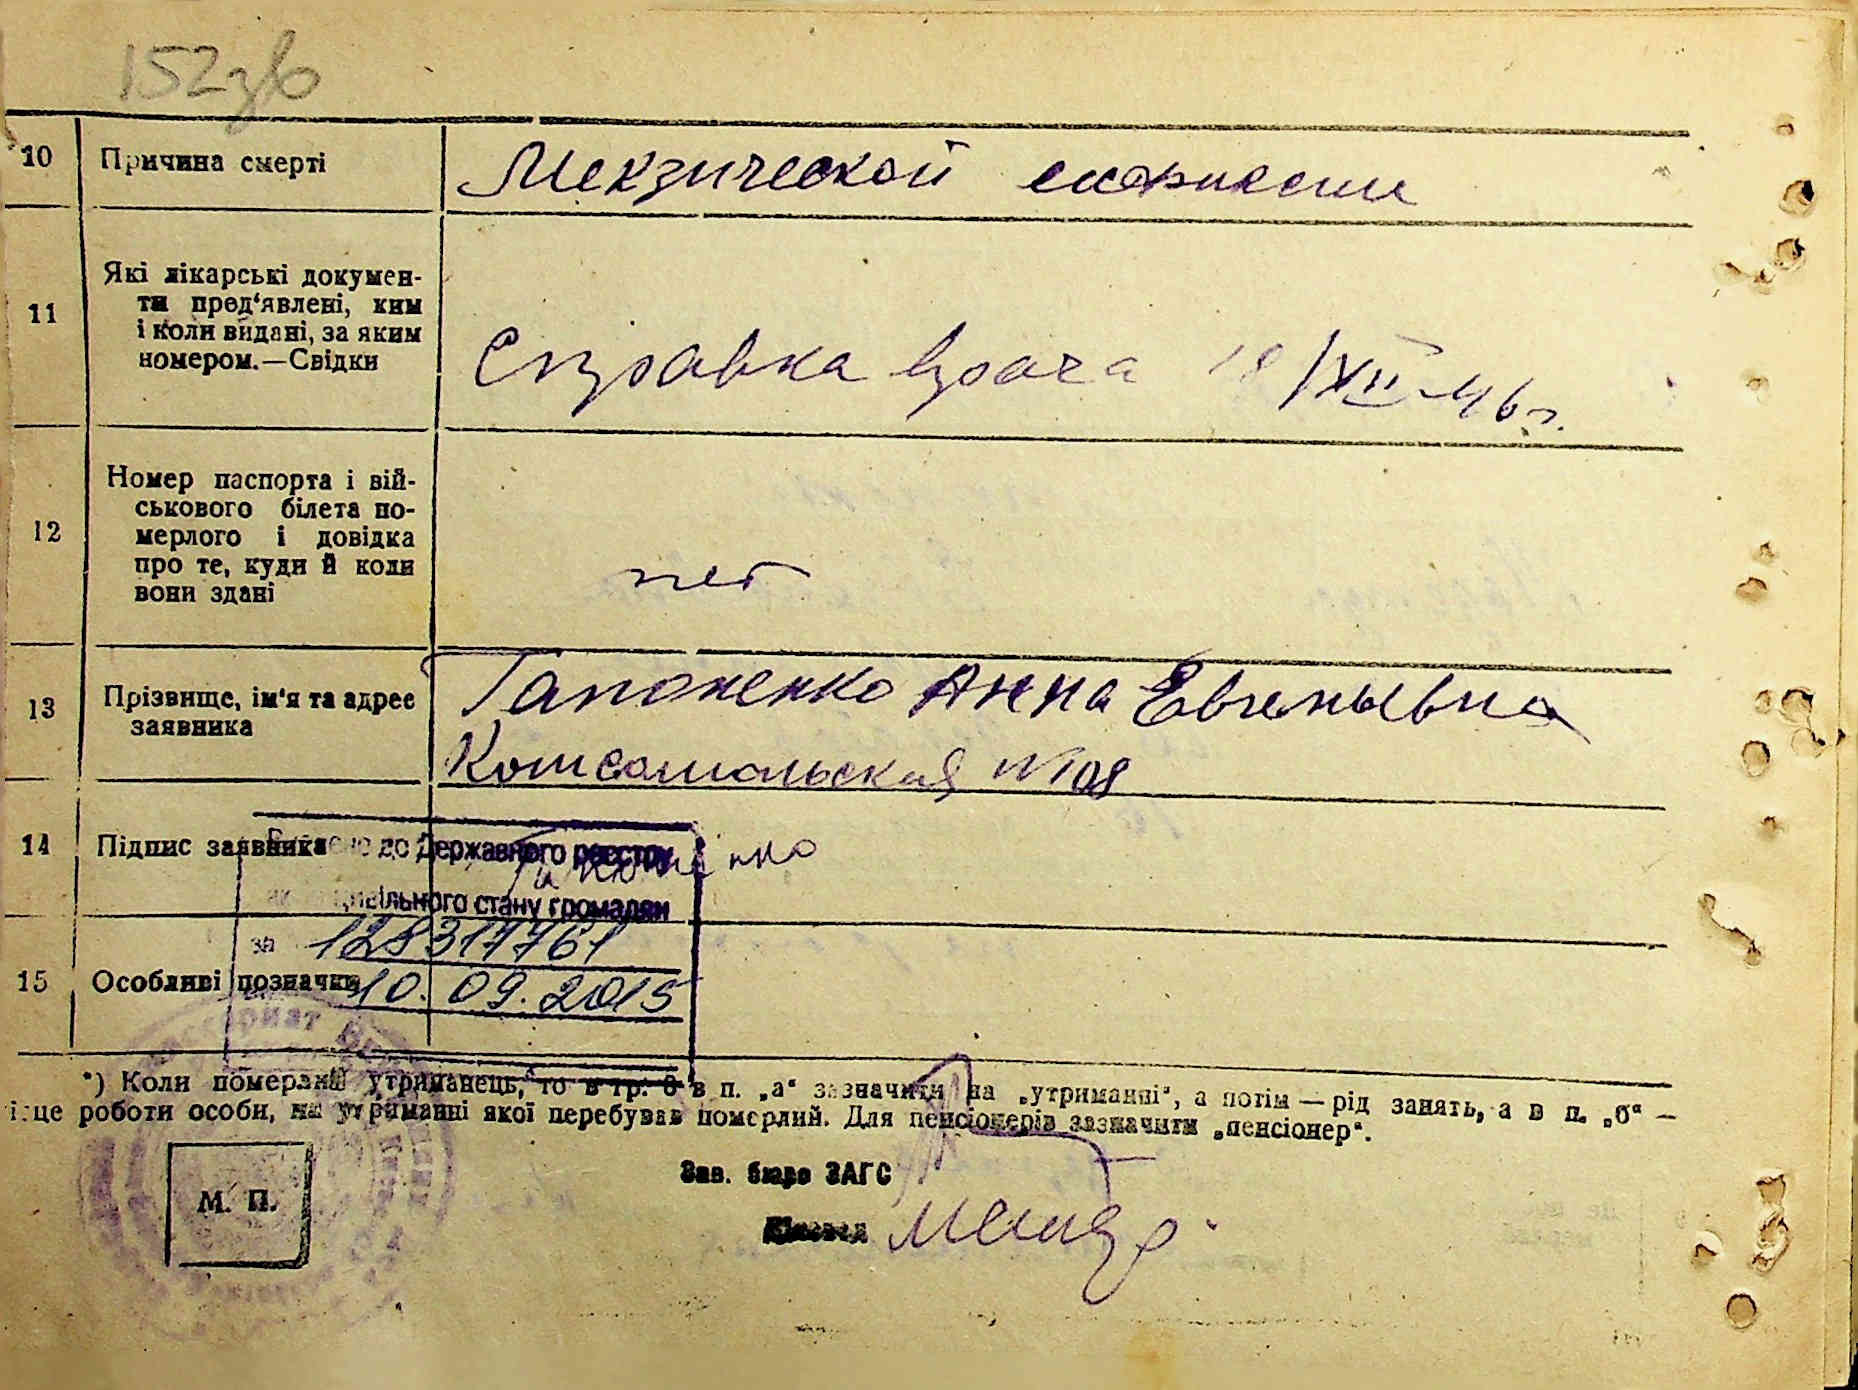 152зв
10 Причина смерті
11 Які лікарські докумен-
ти пред'явлені, ким
і коли видані, за яким
номером.—Свідки
Справка врача 18/XII-46г.
12 Номер паспорта і вій-
ськового білета по-
мерлого і довідка
про те, куди й коли
вони здані
нет
13 Прізвище, ім'я та адрес
заявника
Гапоненко Анна Евгеньевна
Комсомольская №108
14 Підпис заявника
до Державного реєстру
Гапоненко
цивільного стану громадян
за 128317761
15 Особливі позначки
10.09.2015
*) Коли померлий утриманець, то в гр. 8 в п. „а“ зазначити на „утриманні“, а потім — рід занять, а в п. „б“ —
місце роботи особи, на утриманні якої перебував померлий. Для пенсіонерів зазначити „пенсіонер“.
Зав. бюро ЗАГС
М. П.